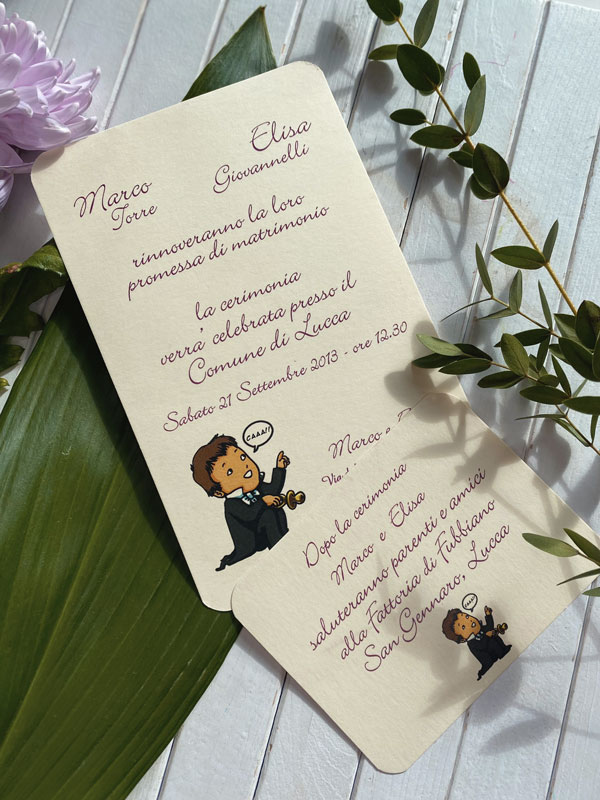 Marco
Torre
Elisa
Giovannelli
rinnoveranno la loro
promessa di matrimonio
la cerimonia
verra' celebrata presso il
Comune di Lucca
Sabato 21 Settembre 2013 - ore 12,30
CAAA!!
Marco
Via
Dopo la cerimonia
Marco e Elisa
saluteranno parenti e amici
alla Fattoria di Fubbiano
San Gennaro, Lucca